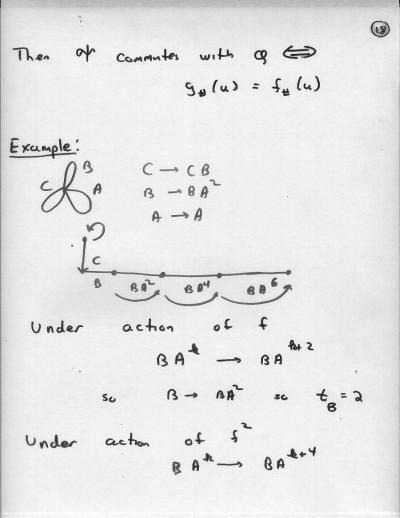 18
Then ψ commutes with φ ⟺
g#(u) = f#(u)
Example:
B
C
A
C → CB
B → BA²
A → A
C
B BA² BA⁴ BA⁶
Under action of f
BAᵏ → BAᵏ⁺²
so B → BA² so t_B = 2
Under action of f²
BAᵏ → BAᵏ⁺⁴